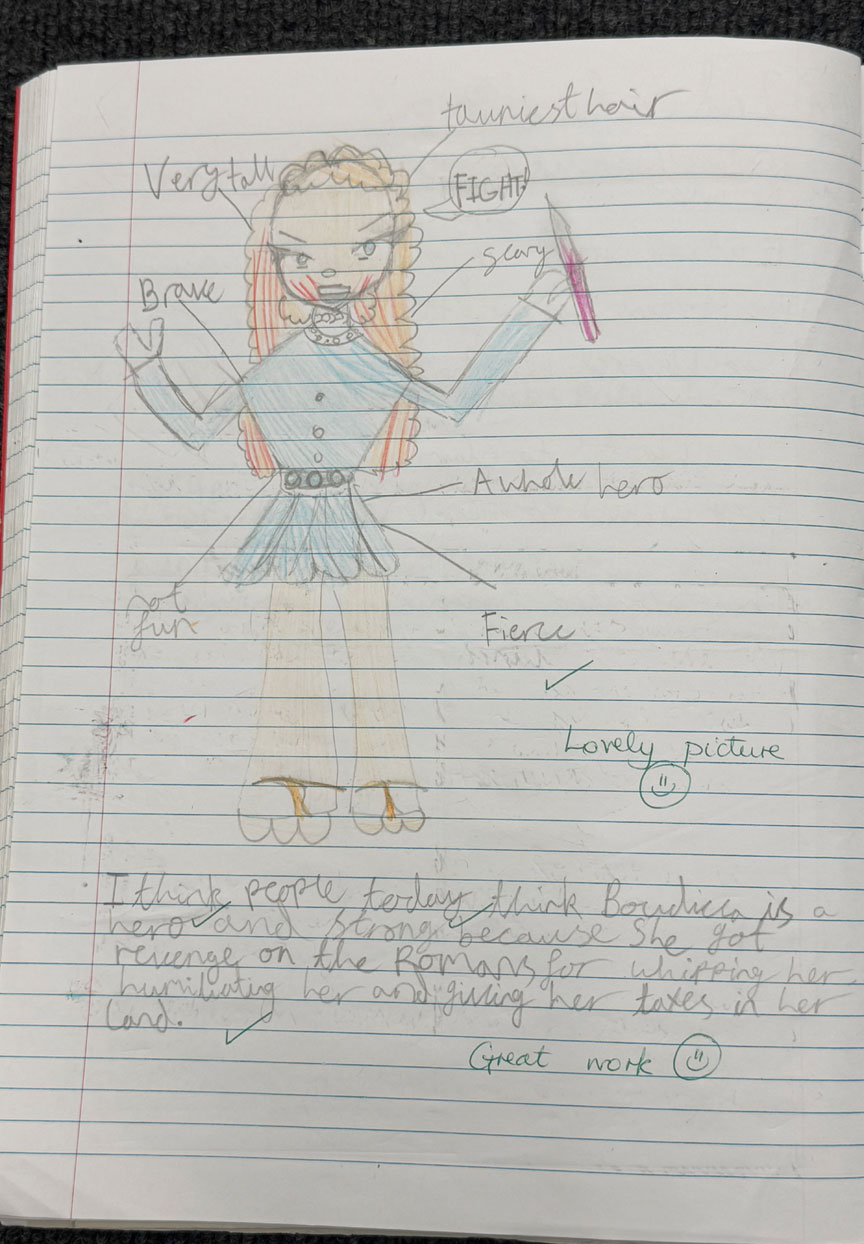 tauniest hair
Very tall
FIGHT!
scary
Brave
A whole hero
not
fun
Fierce
Lovely picture
I think people today think Boudicca is a
hero and strong because she got
revenge on the Romans for whipping her,
humiliating her and giving her taxes in her
land.
Great work